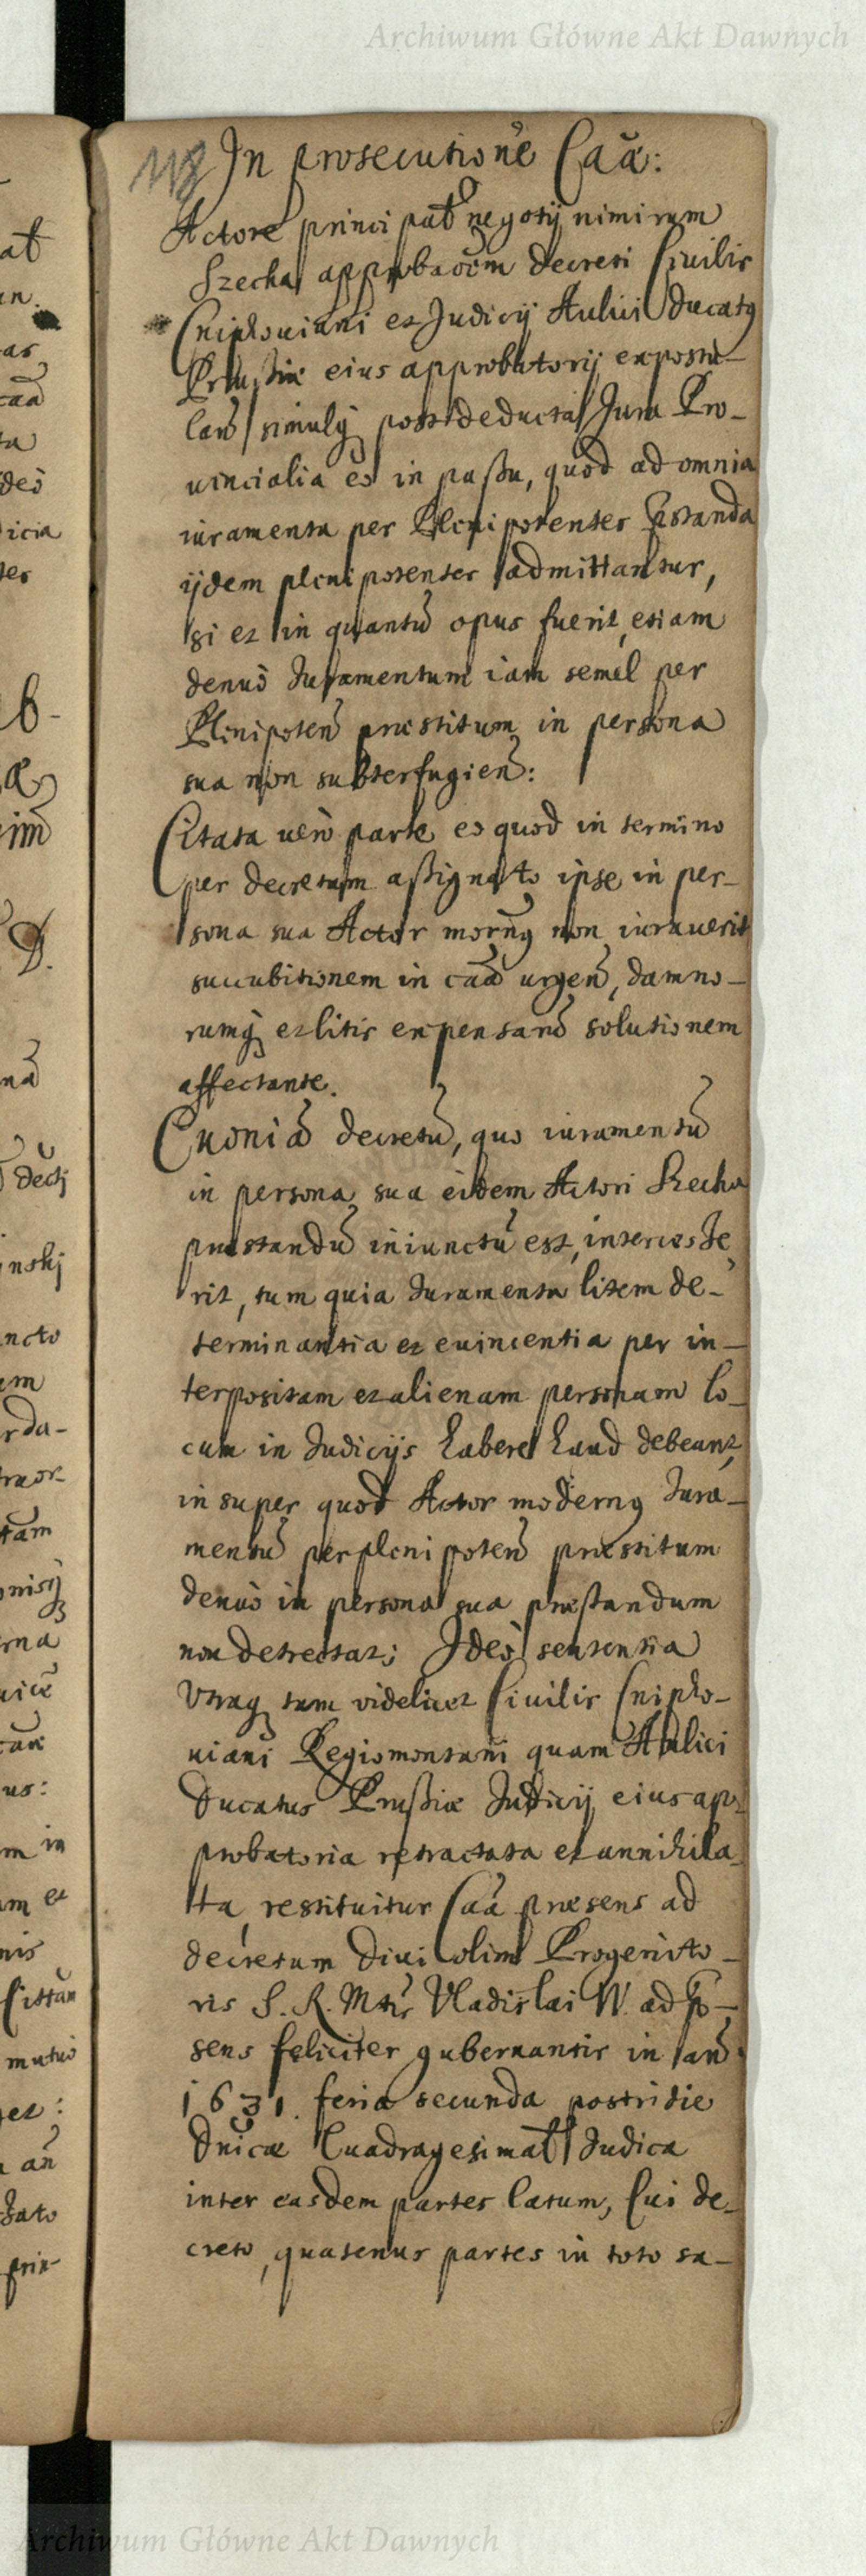 Archiwum Główne Akt Dawnych
In prosecutione Caa:
Actore principat negotij nimirum
Szecha approbaoem decreti Civilis
Cniphoviani et Judicij Aulici Ducatq
Prussiæ eius approbatorij expostu-
lan simulq post deducta Jura Pro-
vincialia eo in passu, quod ad omnia
iuramenta per Plenipotentes
ijdem plenipotentes admittantur,
si et in quantu opus fuerit, etiam
denuo Juramentum iam semel per
Plenipoten præstitum in persona
sua non subterfugien:
Citata vero parte eo quod in termino
per decretum assignato ipse in per-
sona sua Actor mornq non iuraverit
succubitionem in caa urgen, damno-
rumq et litis expensaru solutionem
affectante.
Quonia decretu, quo iuramentu
in persona sua eidem Actori Szecha
præstandu iniunctu est, intercesse
rit, tum quia Juramenta litem de-
terminantia et evincentia per in-
terpositam et alienam personam lo-
cum in Judicijs habere haud debeant,
in super quod Actor modernq Jura-
mentu per plenipoten præstitum
denuo in persona sua præstandum
non detrectat; Ideo sententia
Utraq tam videlicet Civilis Cnipho-
viani Regiomontani quam Aulici
Ducatus Prussiæ Judicij eius ap-
probatoria retractata et annihila-
ta, restituitur Caa præsens ad
decretum Divi olim Progenito-
ris S. R. Mtis Vladislai IV. ad
sens feliciter gubernantis in an
1631. feria secunda postridie
Dnicæ Quadragesimat Judica
inter easdem partes latum, Cui de-
creto, quatenus partes in toto sa-
Archiwum Główne Akt Dawnych